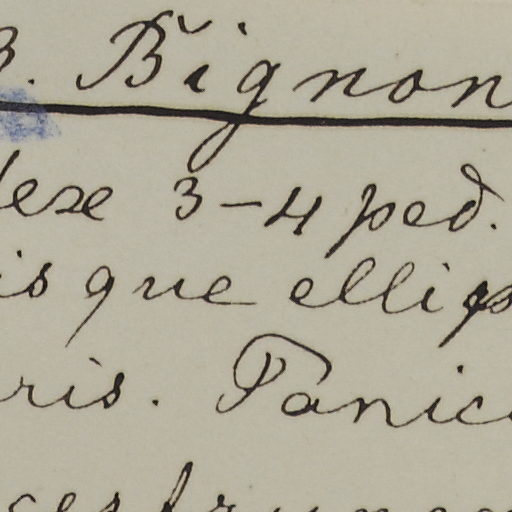 B. Bignon
3-4 ped.
isque ellips
ris. Panic